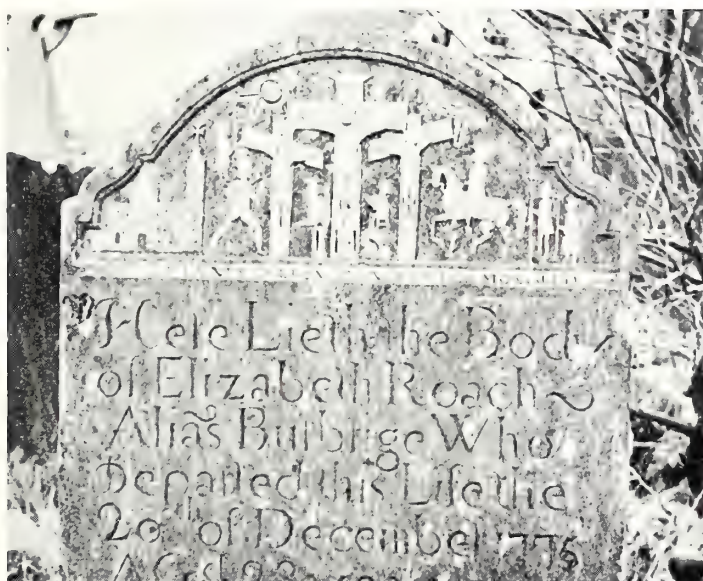 Here Lieth the Body
of Elizabeth Roach
Alias Burbige Who
Departed this Life the
20th of December 1775
Aged